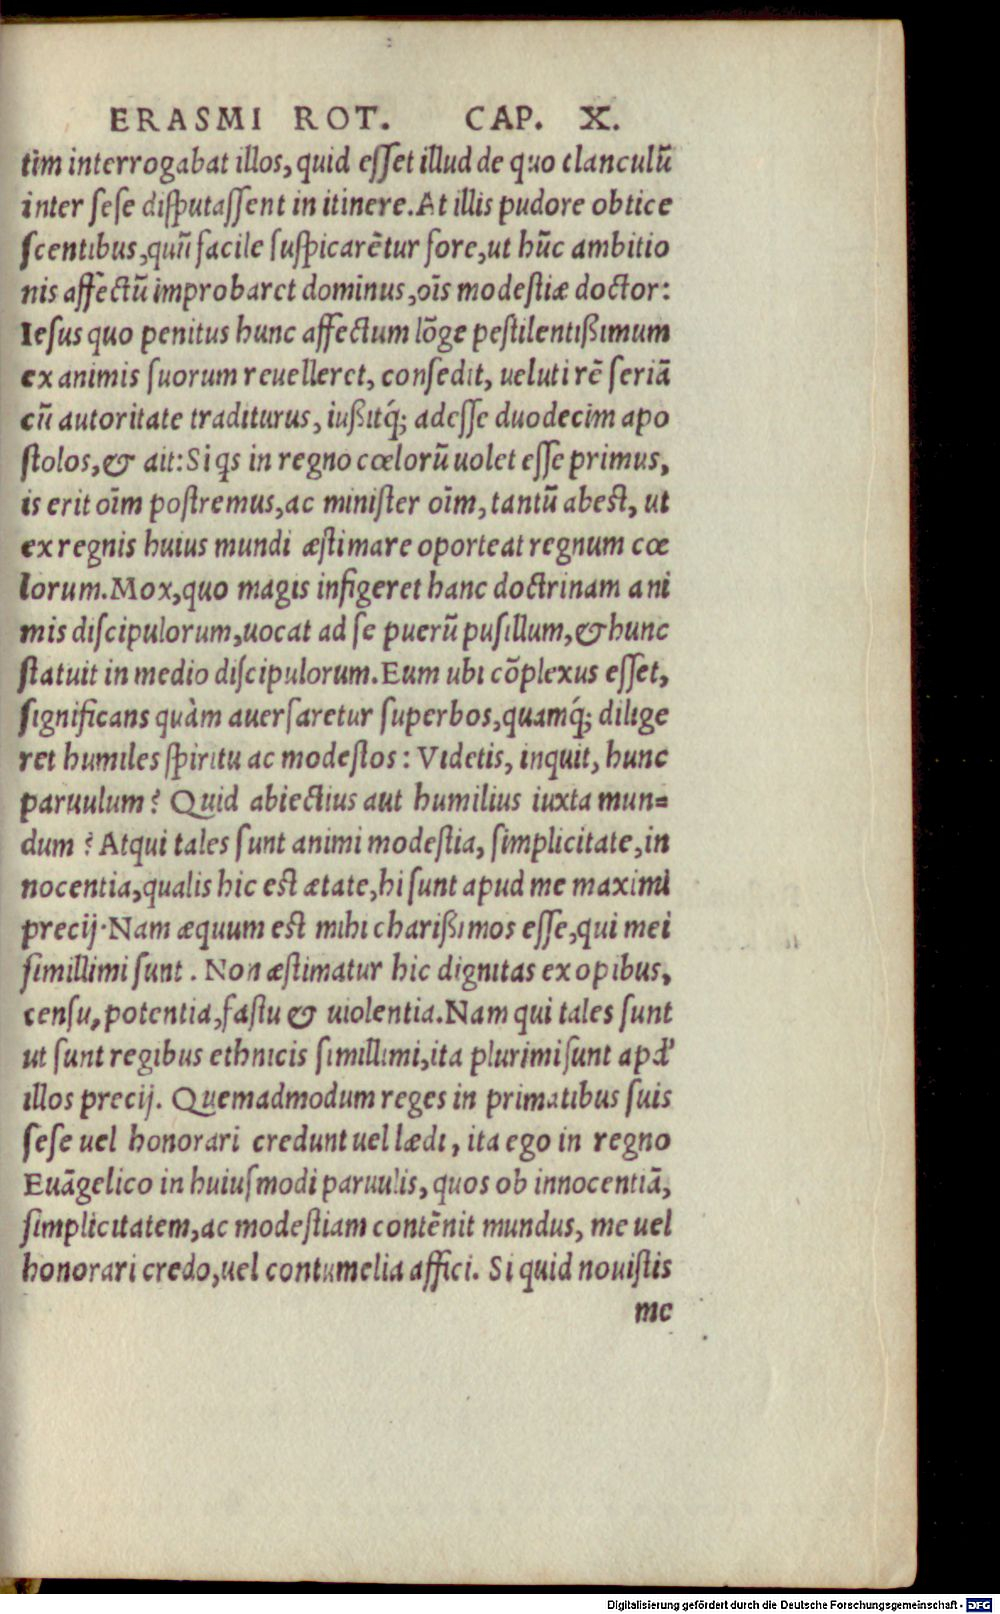 ERASMI ROT. CAP. X.
tim interrogabat illos, quid eſſet illud de quo clanculū
inter ſeſe diſputaſſent in itinere. At illis pudore obtice
ſcentibus, quū facile ſuſpicarētur fore, ut hūc ambitio
nis affectū improbaret dominus, oīs modeſtiæ doctor:
Ieſus quo penitus hunc affectum lōge peſtilentißimum
ex animis ſuorum reuelleret, conſedit, ueluti rē ſeriā
cū autoritate traditurus, iußitq́; adeſſe duodecim apo
ſtolos, & ait: Si qs in regno cœlorū uolet eſſe primus,
is erit oīm poſtremus, ac miniſter oīm, tantū abeſt, ut
ex regnis huius mundi æſtimare oporteat regnum cœ
lorum. Mox, quo magis infigeret hanc doctrinam ani
mis diſcipulorum, uocat ad ſe puerū puſillum, & hunc
ſtatuit in medio diſcipulorum. Eum ubi cōplexus eſſet,
ſignificans quàm auerſaretur ſuperbos, quamq́; dilige
ret humiles ſpiritu ac modeſtos: Videtis, inquit, hunc
paruulum? Quid abiectius aut humilius iuxta mun=
dum? Atqui tales ſunt animi modeſtia, ſimplicitate, in
nocentia, qualis hic eſt ætate, hi ſunt apud me maximi
precij. Nam æquum eſt mihi charißimos eſſe, qui mei
ſimillimi ſunt. Non æſtimatur hic dignitas ex opibus,
cenſu, potentia, faſtu & uiolentia. Nam qui tales ſunt
ut ſunt regibus ethnicis ſimillimi, ita plurimi ſunt apd'
illos precij. Quemadmodum reges in primatibus ſuis
ſeſe uel honorari credunt uel lædi, ita ego in regno
Euāgelico in huiuſmodi paruulis, quos ob innocentiā,
ſimplicitatem, ac modeſtiam contēnit mundus, me uel
honorari credo, uel contumelia affici. Si quid nouiſtis
me
Digitalisierung gefördert durch die Deutsche Forschungsgemeinschaft - DFG